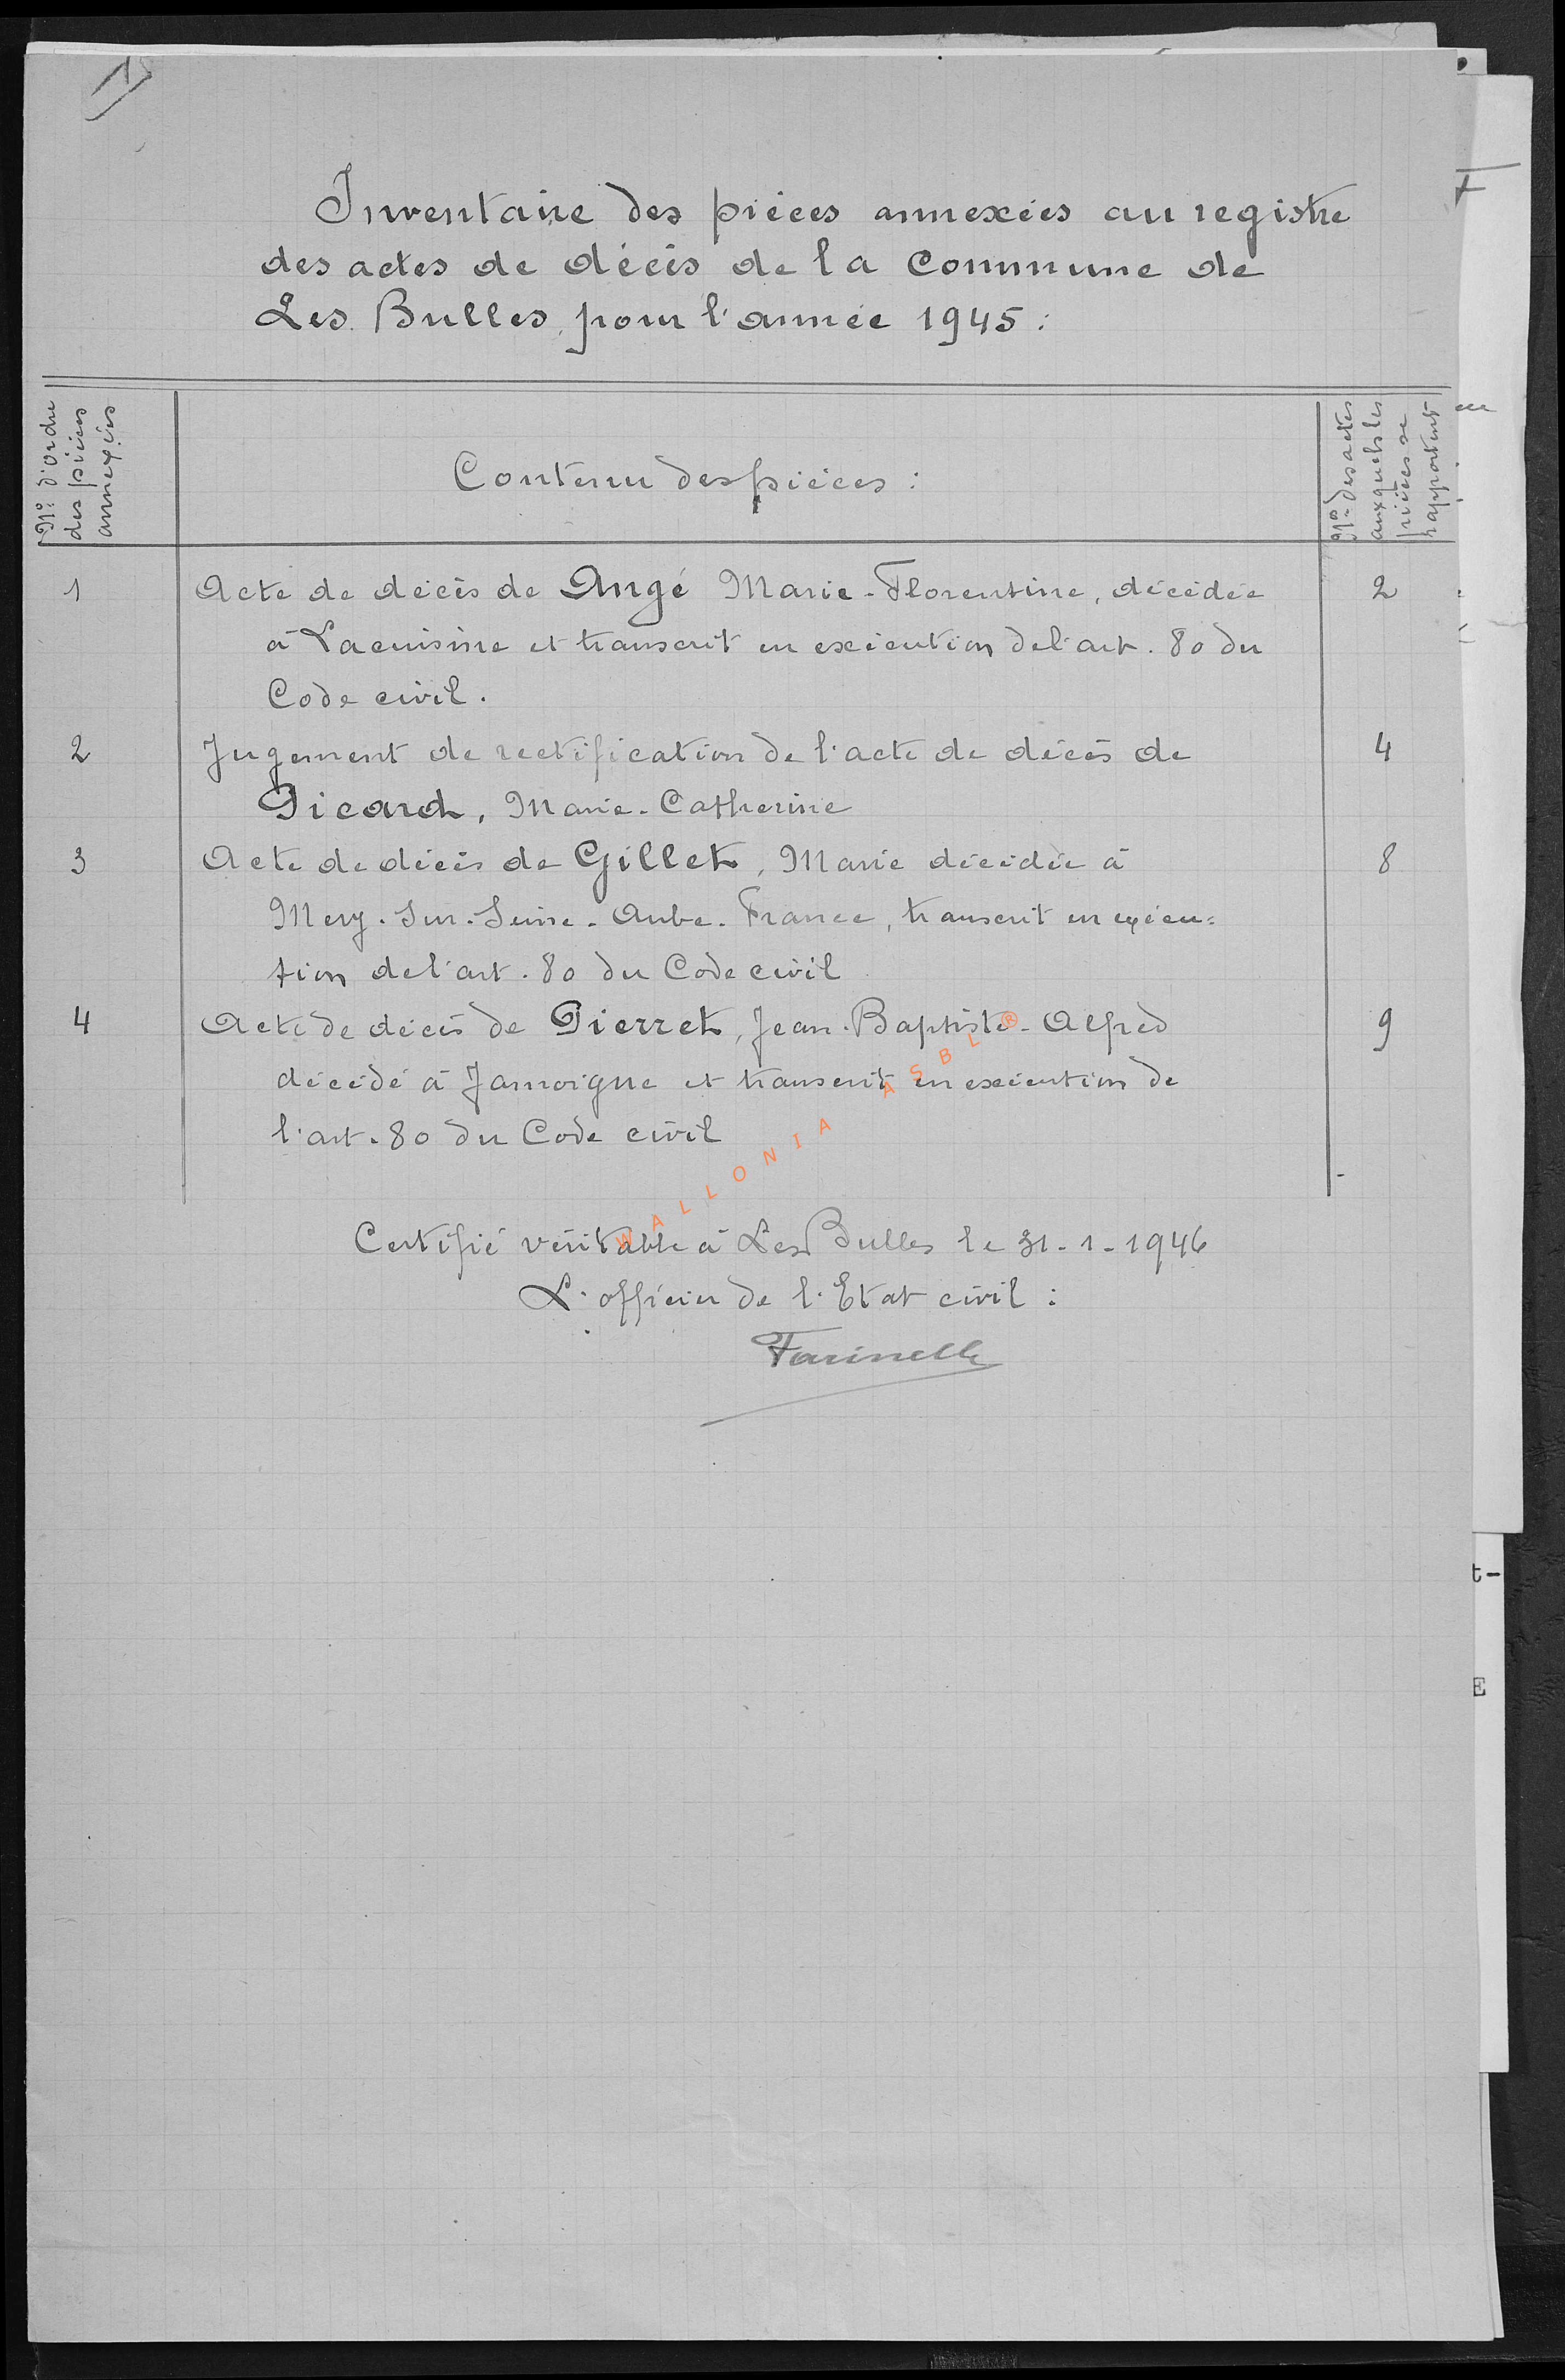 1)
Inventaire des pièces annexées au registre
des actes de décès de la Commune de
Les Bulles pour l'année 1945 :
N° d'ordre
des pièces
annexées
Contenu des pièces :
Nos des actes
auxquels les
pièces se
rapportent
1 Acte de décès de Angé Marie-Florentine, décédée 2
à Lacuisine et transcrit en exécution de l'art. 80 du
Code civil.
2 Jugement de rectification de l'acte de décès de 4
Picard, Marie-Catherine
3 Acte de décès de Gillet, Marie décédée à 8
Mery-Sur-Seine-Aube-France, transcrit en exécu=
tion de l'art. 80 du Code civil
4 Acte de décès de Pierret, Jean-Baptiste-Alfred 9
décédé à Jamoigne et transcrit en exécution de
l'art. 80 du Code civil
WALLONIA ASBL ®
Certifié véritable à Les Bulles le 31-1-1946
L'officier de l'Etat civil :
Farinelle
t-
E